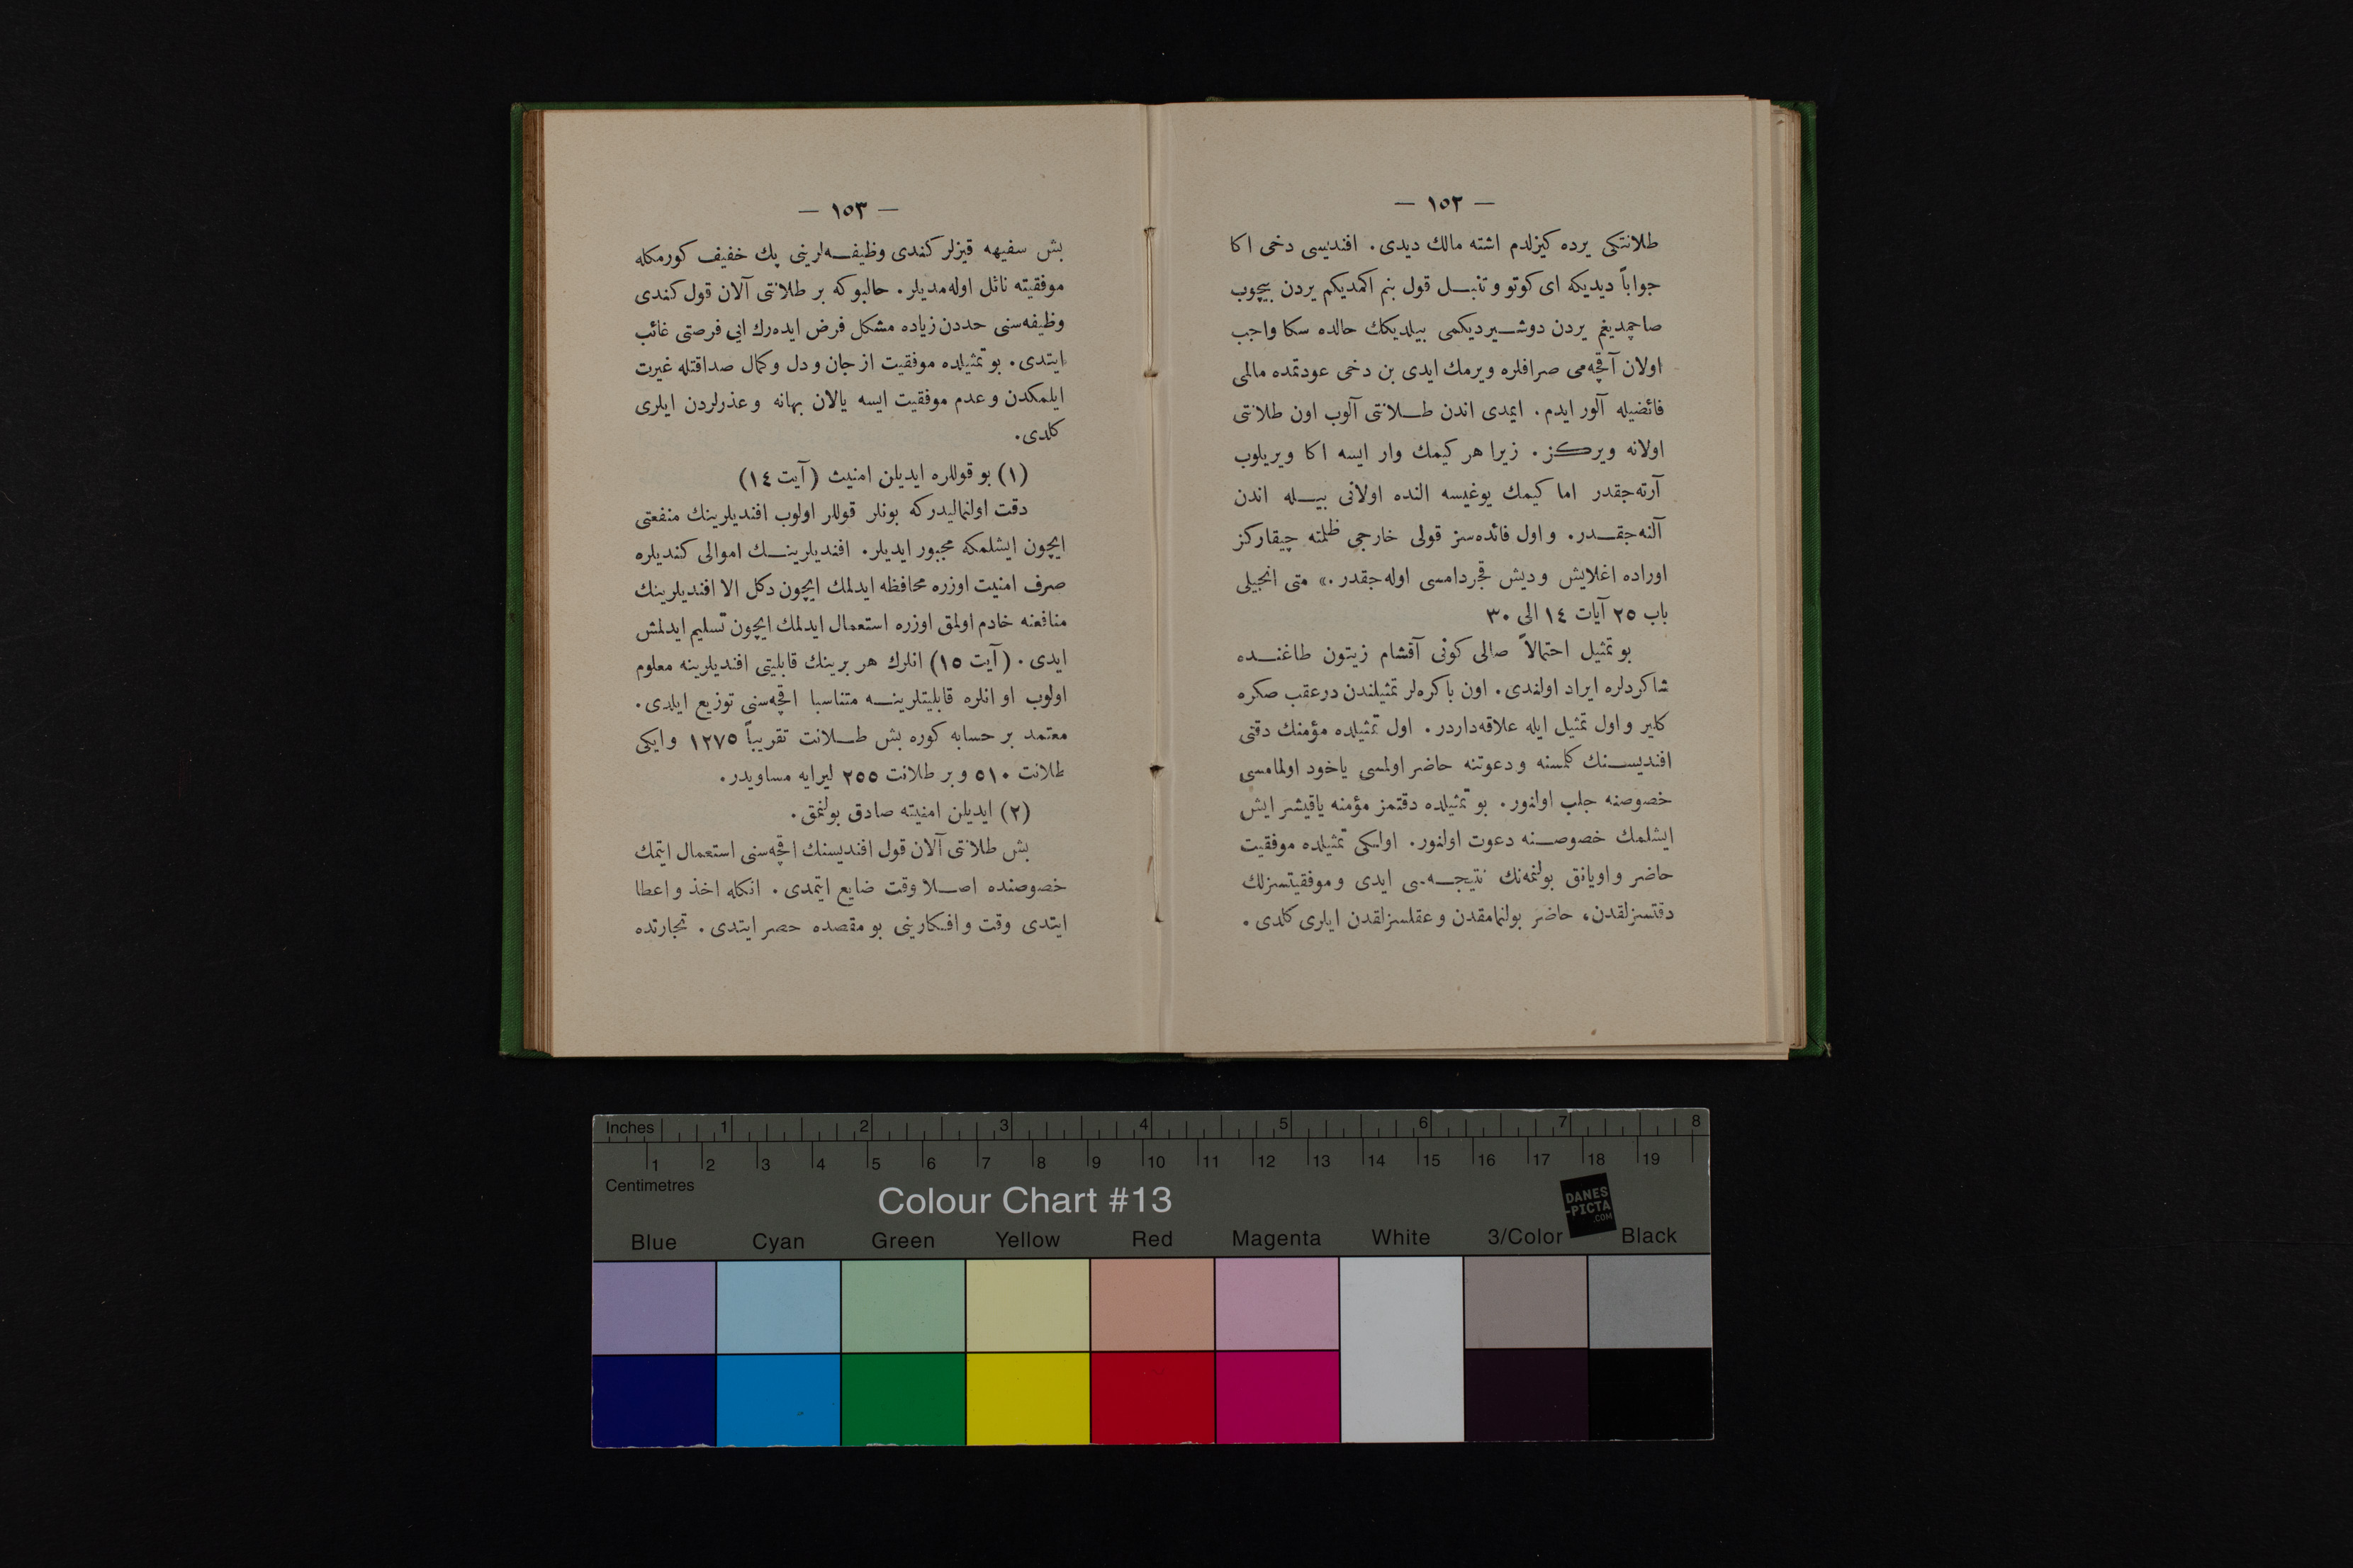 — ١٥٢ —
طلانتكی يرده كيزلدم اشته مالك ديدی. افنديسی دخی اكا
جواباً ديديكه ای كوتو و تنبل قول بنم اكمديكم يردن بيچوب
صاچمديغم يردن دوشيرديكمی بيلديكك حالده سكا واجب
اولان آقچه‌می صرافلره ويرمك ايدی بن دخی عودتمده مالمی
فائضيله آلور ايدم. ايمدی اندن طلانتی آلوب اون طلانتی
اولانه ويركز. زيرا هر كيمك وار ايسه اكا ويريلوب
آرته‌جقدر اما كيمك يوغيسه النده اولانی بيله اندن
آلنه‌جقدر. و اول فائده‌سز قولی خارجی ظلمته چيقاركز
اوراده اغلايش و ديش قجردامسی اوله‌جقدر.» متی انجيلی
باب ٢٥ آيات ١٤ الی ٣٠
بو تمثيل احتمالاً صالی كونی آقشام زيتون طاغنده
شاكردلره ايراد اولندی. اون باكره‌لر تمثيلندن درعقب صكره
كلير و اول تمثيل ايله علاقه‌داردر. اول تمثيلده مؤمنك دقتی
افنديسنك كلمسنه و دعوتنه حاضر اولمسی ياخود اولمامسی
خصوصنه جلب اولنور. بو تمثيلده دقتمز مؤمنه ياقيشر ايش
ايشلمك خصوصنه دعوت اولنور. اولكی تمثيلده موفقيت
حاضر و اويانق بولنمه‌نك نتيجه‌سی ايدی و موفقيتسزلك
دقتسزلقدن، حاضر بولنمامقدن و عقلسزلقدن ايلری كلدی.
— ١٥٣ —
بش سفيهه قيزلر كندی وظيفه‌لرينی پك خفيف كورمكله
موفقيته نائل اوله‌مديلر. حالبوكه بر طلانتی آلان قول كندی
وظيفه‌سنی حددن زياده مشكل فرض ايده‌رك ايی فرصتی غائب
ايتدی. بو تمثيلده موفقيت از جان و دل و كمال صداقتله غيرت
ايلمكدن و عدم موفقيت ايسه يالان بهانه و عذرلردن ايلری
كلدی.
(١) بو قوللره ايديلن امنيت (آيت ١٤)
دقت اولنماليدركه بونلر قوللر اولوب افنديلرينك منفعتی
ايچون ايشلمكه مجبور ايديلر. افنديلرينك اموالی كنديلره
صرف امنيت اوزره محافظه ايدلمك ايچون دكل الا افنديلرينك
منافعنه خادم اولمق اوزره استعمال ايدلمك ايچون تسليم ايدلمش
ايدی. (آيت ١٥) انلرك هر برينك قابليتی افنديلرينه معلوم
اولوب او انلره قابليتلرينه متناسبا اقچه‌سنی توزيع ايلدی.
معتمد بر حسابه كوره بش طلانت تقريباً ١٢٧٥ و ايكی
طلانت ٥١٠ و بر طلانت ٢٥٥ ليرايه مساويدر.
(٢) ايديلن امنيته صادق بولنمق.
بش طلانتی آلان قول افنديسنك اقچه‌سنی استعمال ايتمك
خصوصنده اصلا وقت ضايع ايتمدی. انكله اخذ و اعطا
ايتدی وقت و افكارينی بو مقصده حصر ايتدی. تجارتده
Inches 1 2 3 4 5 6 7 8
1 2 3 4 5 6 7 8 9 10 11 12 13 14 15 16 17 18 19
Centimetres
Colour Chart #13
DANES
-PICTA
.COM
Blue Cyan Green Yellow Red Magenta White 3/Color Black